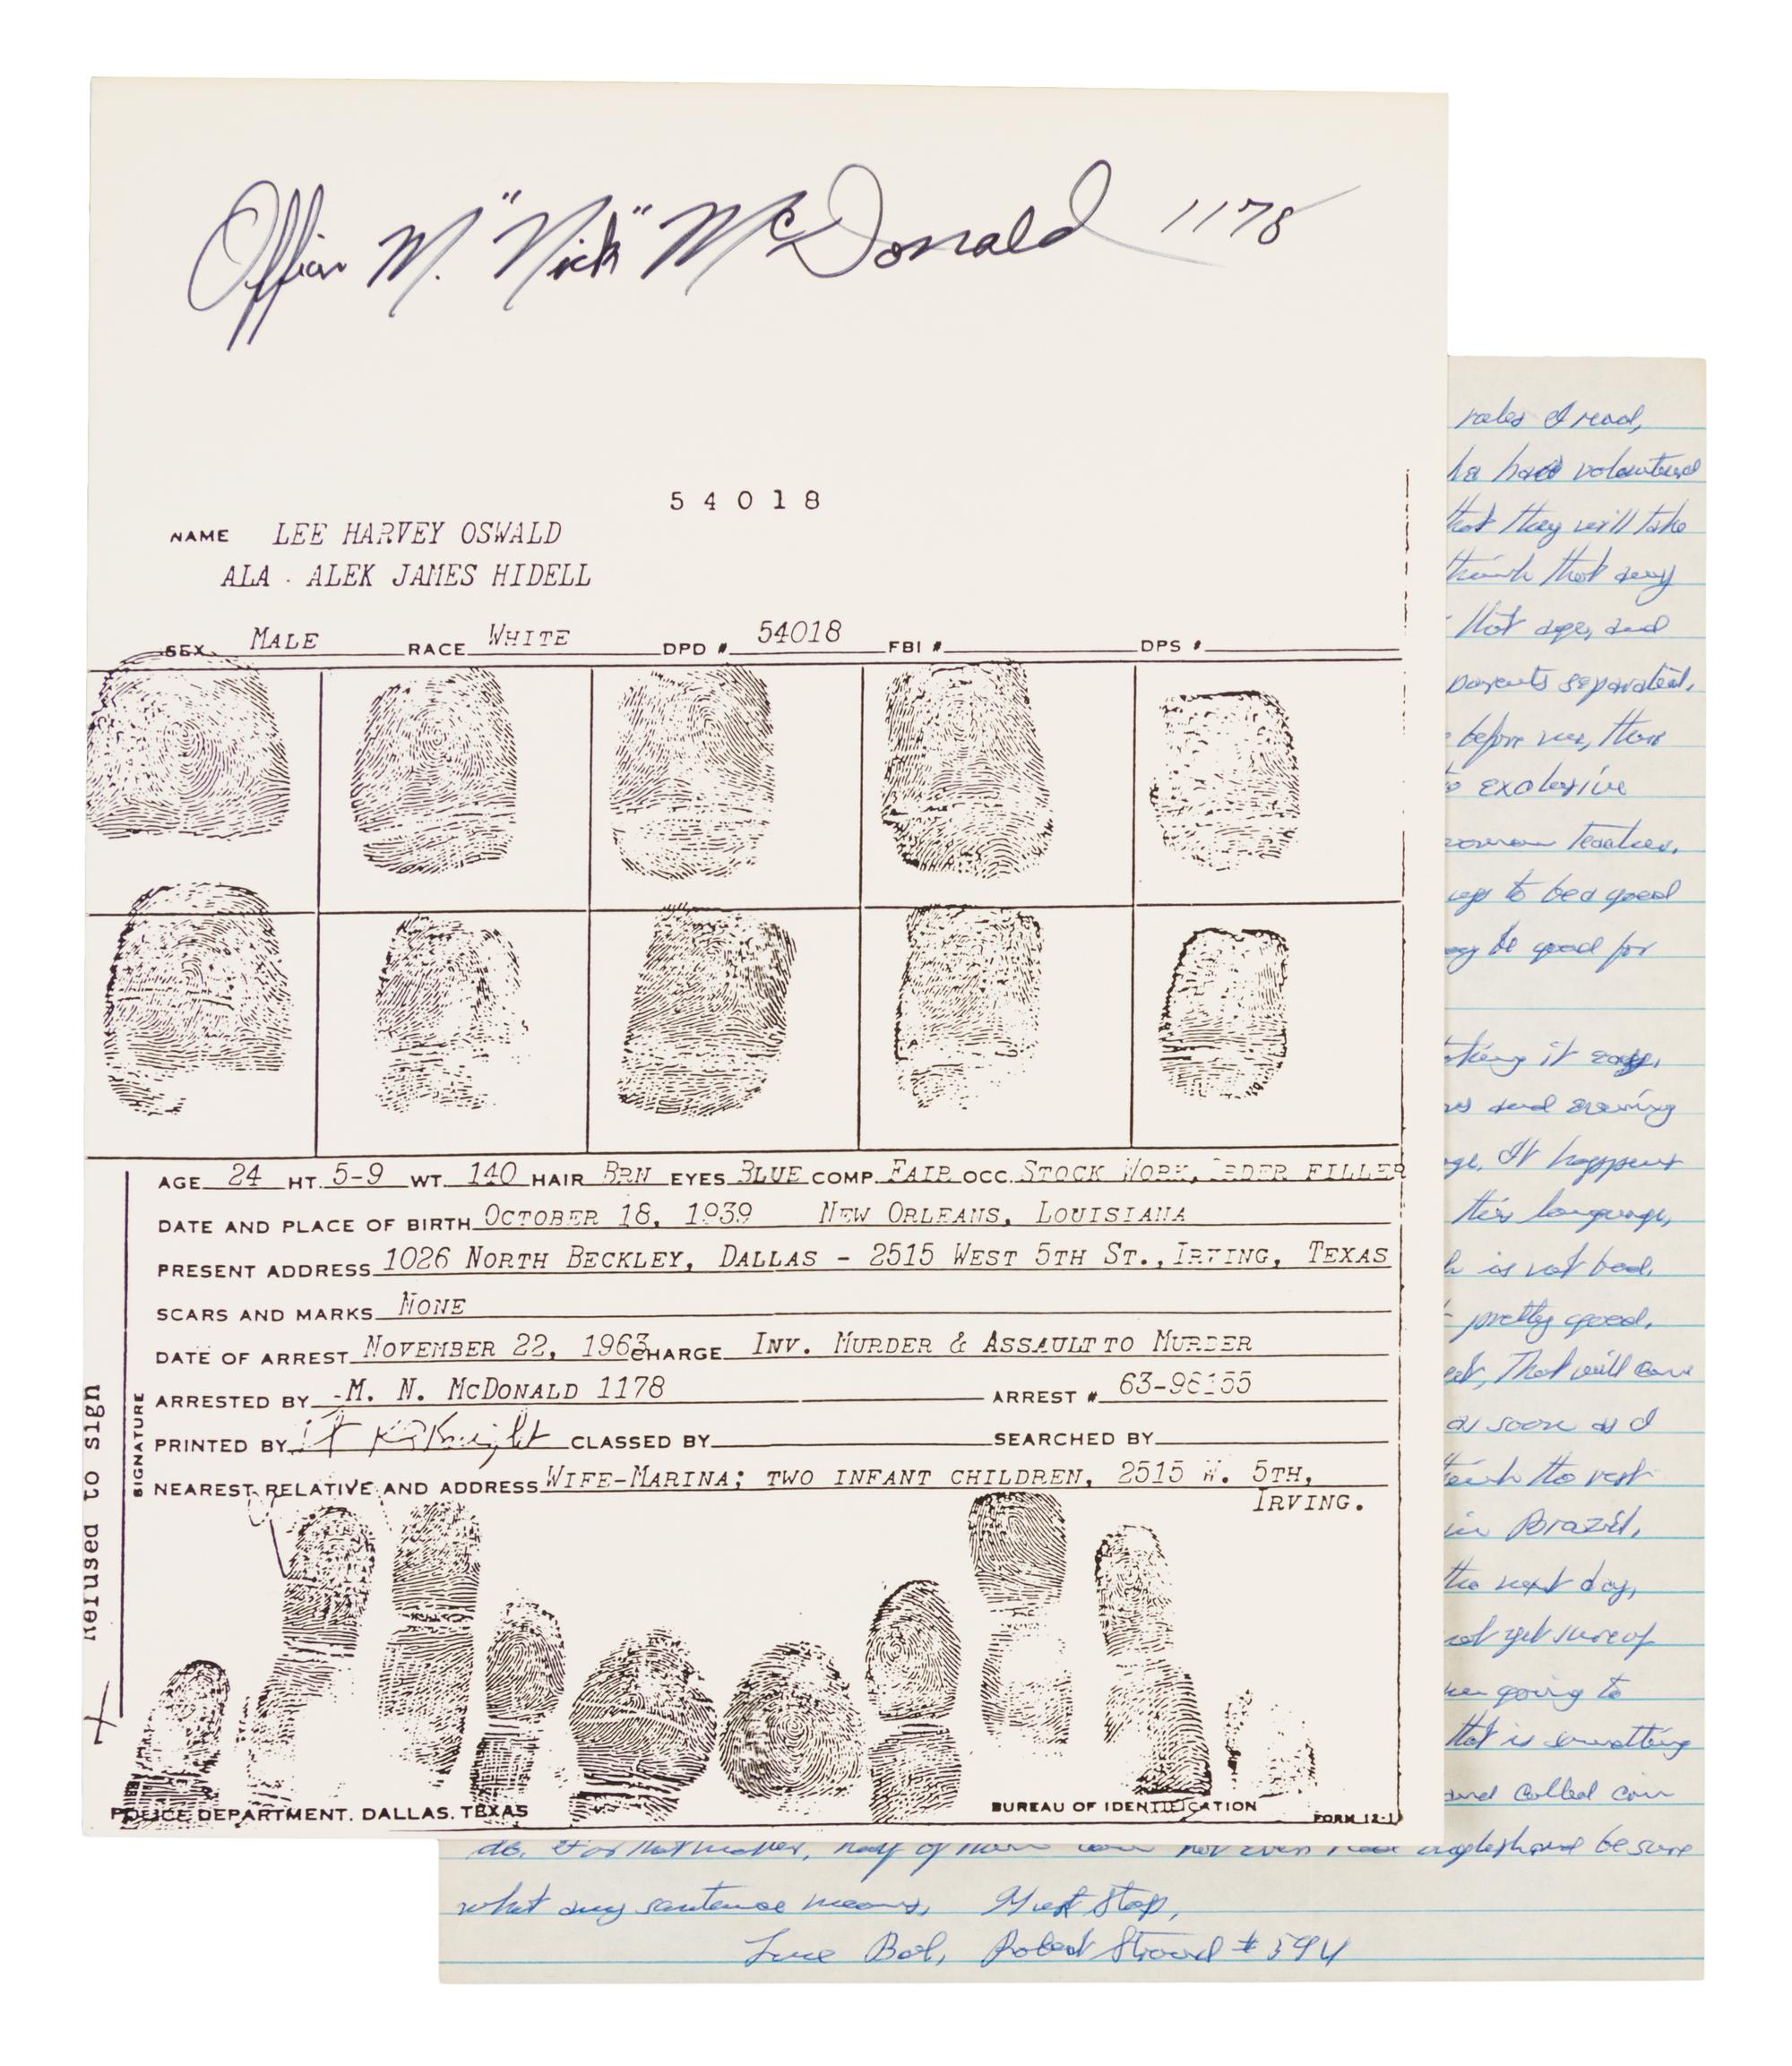 Officer M. "Nick" McDonald 1178
54018
NAME LEE HARVEY OSWALD
ALA . ALEK JAMES HIDELL
SEX MALE RACE WHITE DPD # 54018 FBI # DPS #
AGE 24 HT. 5-9 WT. 140 HAIR BRN EYES BLUE COMP. FAIR OCC. STOCK WORK, ORDER FILLER
DATE AND PLACE OF BIRTH OCTOBER 18, 1939 NEW ORLEANS, LOUISIANA
PRESENT ADDRESS 1026 NORTH BECKLEY, DALLAS - 2515 WEST 5TH ST., IRVING, TEXAS
SCARS AND MARKS NONE
DATE OF ARREST NOVEMBER 22, 1963 CHARGE INV. MURDER & ASSAULT TO MURDER
ARRESTED BY M. N. MCDONALD 1178 ARREST # 63-98155
PRINTED BY CLASSED BY SEARCHED BY
NEAREST RELATIVE AND ADDRESS WIFE-MARINA; TWO INFANT CHILDREN, 2515 W. 5TH,
IRVING.
SIGNATURE
Refused to sign
POLICE DEPARTMENT, DALLAS, TEXAS BUREAU OF IDENTIFICATION FORM 12-1
I read,
he had volunteered
that they will take
think that any
that age, and
parents separated.
before me, then
explosive
woman teacher.
to bed good
be good for
it easy,
and
It happens
this language,
is not bad.
pretty good.
That will
as soon as I
think the rest
in Brazil,
the next day,
not yet sure of
going to
that is something
and called
be sure
what any sentence means, Must stop,
Robert Stroud # 594